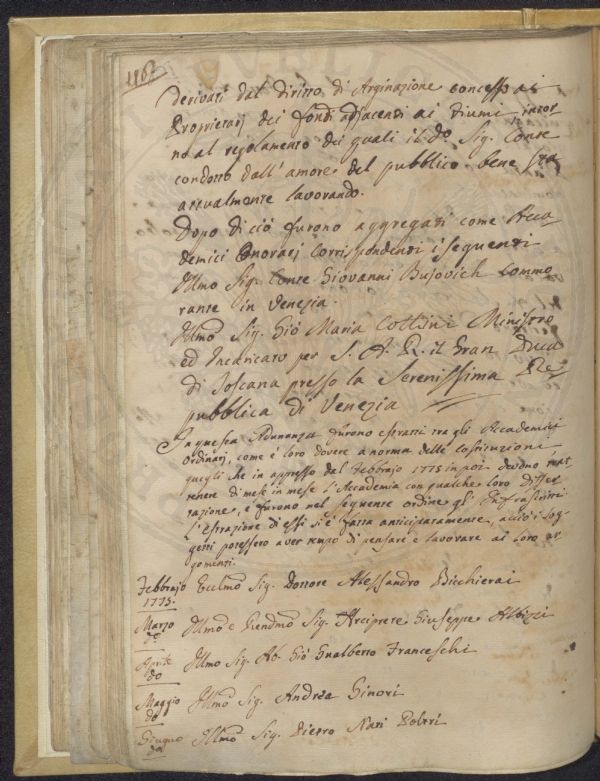 derivati dal diritto di Arginazione concesso ai
Proprietarj dei fondi adjacendi ai fiumi, intor-
no al regolamento dei quali il do. Sig. Conte
condotto dall'amore del pubblico bene sta
attualmente lavorando.
Dopo di ciò furono aggregati come Acca-
demici Onorarj Corrispondenti i seguenti
Illmo Sig. Conte Giovanni Bujovich Commo
rante in Venezia.
Illmo Sig. Giō Maria Cottini Ministro
ed Incaricato per S. A. R. il Gran Duca
di Toscana presso la Serenissima Re-
pubblica di Venezia
In questa Adunanza furono estratti tra gli Accademici
ordinarj, come è loro dovere a norma delle Costituzioni,
quegli che in appresso dal Febbrajo 1775 in poi devono trat
tenere di mese in mese l'Accademia con qualche loro disser
tazione, e furono nel seguente ordine gl'Infrascritti
L'estrazione di essi si è fatta anticipatamente, acciò i sog-
getti potessero aver tempo di pensare e lavorare ai loro ar
gomenti.
Febbrajo Ecclmo Sig. Dottore Alessandro Bicchierai
1775.
Marzo Illmo e Rendmo Sig. Arciprete Giuseppe Albizzi
do
Aprile Illmo Sig. Ab. Giō Gualberto Franceschi
do
Maggio Illmo Sig. Andrea Ginori
do
Giugno Illmo Sig. Pietro Nati Poltri
do